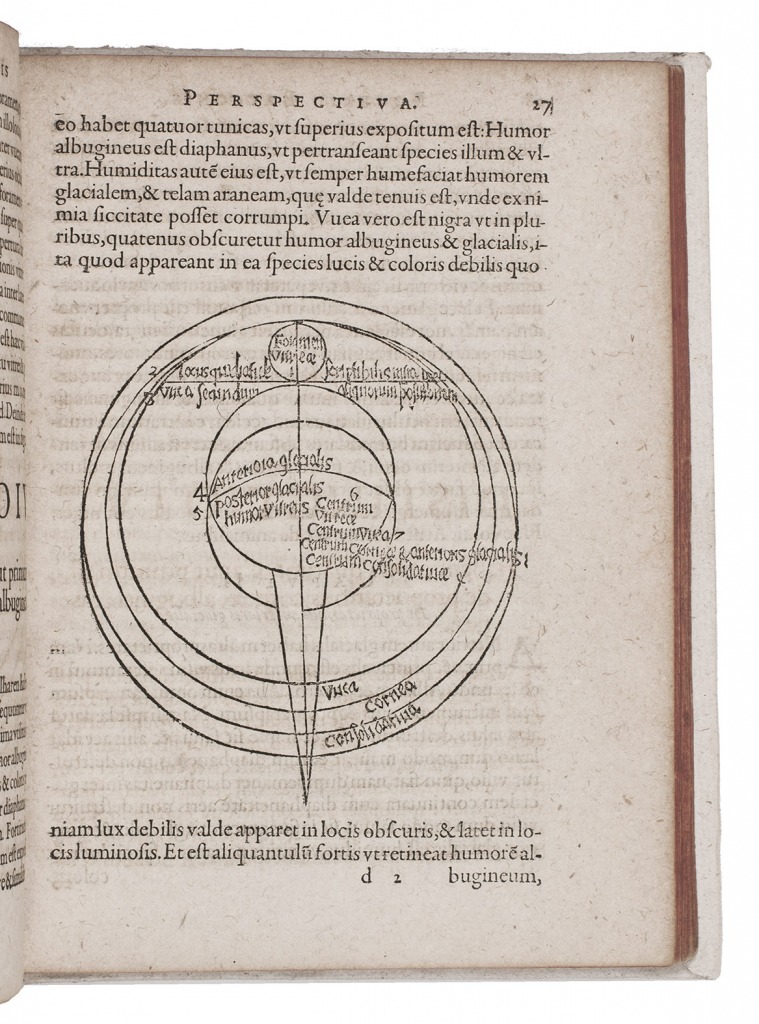 PERSPECTIVA.
27
eo habet quatuor tunicas, vt ſuperius expoſitum eſt: Humor
albugineus eſt diaphanus, vt pertranſeant ſpecies illum & vl-
tra. Humiditas autē eius eſt, vt ſemper humefaciat humorem
glacialem, & telam araneam, quę valde tenuis eſt, vnde ex ni-
mia ſiccitate poſſet corrumpi. Vuea vero eſt nigra vt in plu-
ribus, quatenus obſcuretur humor albugineus & glacialis, i-
ta quod appareant in ea ſpecies lucis & coloris debilis quo
Foramen
Vueæ
2
3 Vuea ſecundum
aliquorum poſitionem
Anteriora glacialis
4
Poſterior glacialis
5
humor vitreus
6
Centrum
Vitreæ
Centrum Vueæ 7
Centrum Corneæ & anterioris glacialis
Centrum Conſolidatiuæ
Vuea
Cornea
Conſolidatiua
niam lux debilis valde apparet in locis obſcuris, & latet in lo-
cis luminoſis. Et eſt aliquantulū fortis vt retineat humorē al-
d 2 bugineum,